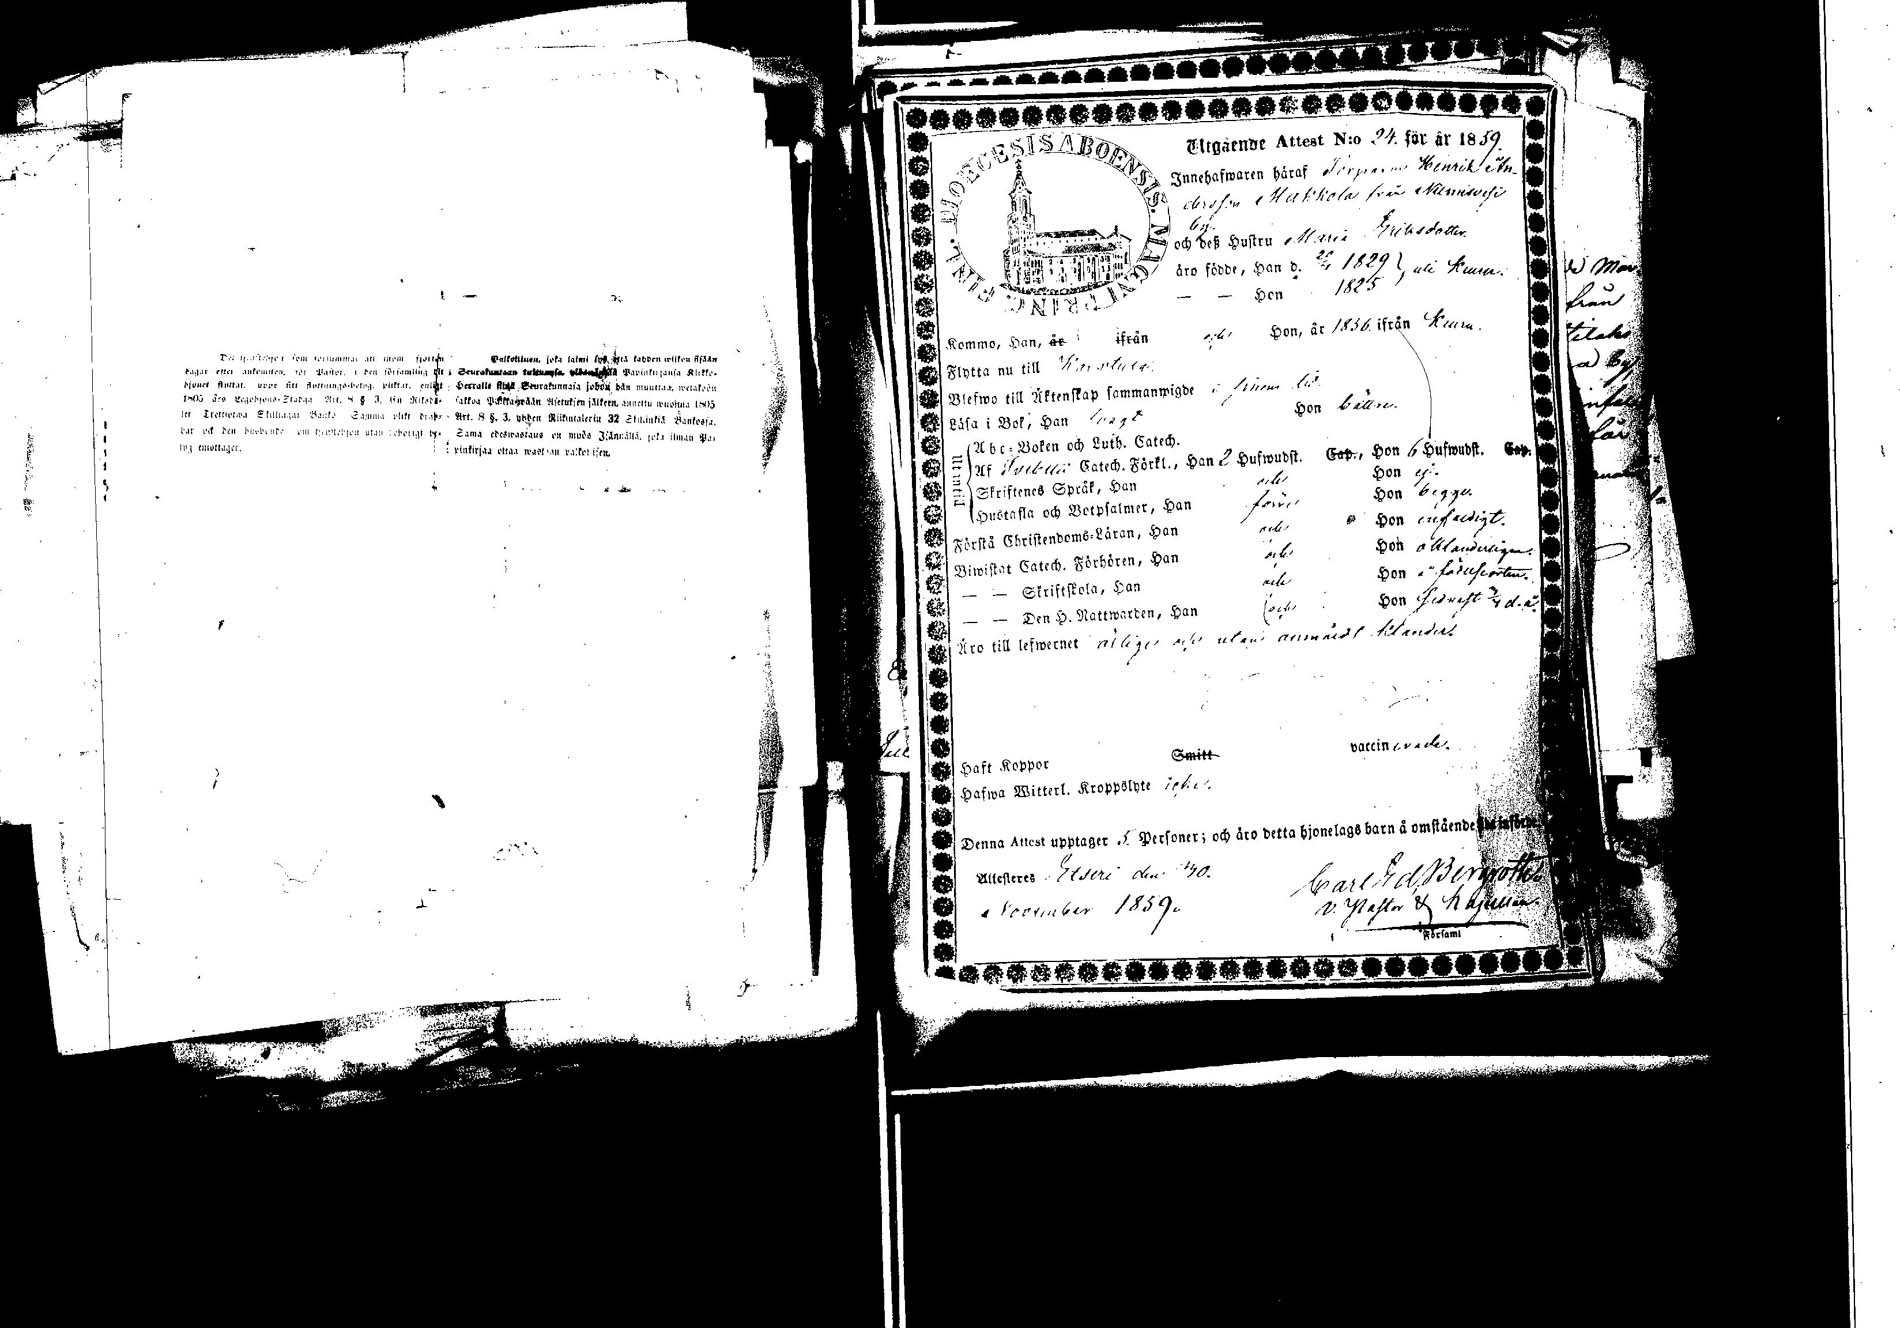 Det tjenstehjon som försummar att inom fjorton
dagar efter ankomsten, för Pastor i den församling dit
hjonet flyttat, uppte sitt flyttnings-betyg, pliktar, enligt
1805 års Legohjons-Stadga Art. 8 § 3, En Riksda-
ler Trettiotwå Skillingar Banko. Samma plikt drab-
bar ock den husbonde som tjenstehjon utan behörigt be-
tyg emottager.
Palkollinen, joka laimi lyö, että kahden wiikon sisään
Seurakuntaan tultuansa, ylösnäyttää Papinkirjansa Kirkko-
Herralle siinä Seurakunnassa johon hän muuttaa, wetäköön
sakkoa Palkkawäen Asetuksen jälkeen, annettu wuonna 1805
Art. 8 §. 3. yhden Riikintalerin 32 Skillinkiä Bankossa.
Sama edeswastaus on myös Isännällä, joka ilman Pa-
pinkirjaa ottaa wastaan palkollisen.
DIOECESIS ABOENSIS. MAGNI PRINC. FINL.
Utgående Attest N:o 24. för år 1859.
Innehafwaren häraf Torparen Henrik An-
dersson Makkola från Niemisvesi
by.
och deß Hustru Maria Eriksdotter
äro födde, Han d. 1829, uti Keuru.
— — Hon 1825
Kommo, Han, år ifrån och Hon, år 1856 ifrån Keuru.
Flytta nu till Karstula
Blefwo till Äktenskap sammanwigde i sinom tid.
Läsa i Bok, Han swagt Hon bättre.
Utantill
Abc-Boken och Luth. Catech.
Af Svebelii Catech. Förkl., Han 2 Hufwudst. Cap., Hon 6 Hufwudst. Cap.
Skriftenes Språk, Han och Hon ej.
Hustafla och Botpsalmer, Han förra Hon begge.
Förstå Christendoms-Läran, Han och Hon enfaldigt.
Biwistat Catech. Förhören, Han och Hon oklanderligen.
— — Skriftskola, Han och Hon
— — Den H. Nattwarden, Han och Hon sednast d. å.
Äro till lefwernet ärlige och utan anmärkt klander.
Haft Koppor Smitt vaccinerade.
Hafwa Witterl. Kroppslyte icke.
Denna Attest upptager 5 Personer; och äro detta hjonelags barn å omstående
Attesteres Etseri den 30.
November 1859.
Carl Ed. Bergroth
v. Pastor & Kapellan.
Församl